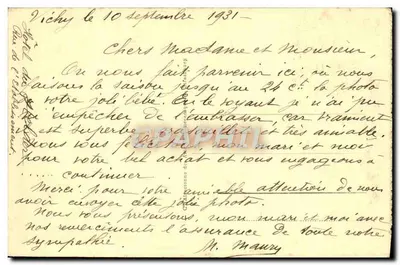 Vichy le 10 septembre 1931 -
Chers Madame et Monsieur,
On nous fait parvenir ici, où nous
faisons la saison jusqu'au 24 ct la photo
votre joli bébé. En le voyant je n'ai pu
empêcher de l'embrasser, car vraiment
est superbe et très aimable.
nous vous mon mari et moi
pour votre bel achat et vous engageons à
..... continuer
Merci pour votre aimable attention de nous
avoir envoyer cette jolie photo.
Nous vous présentons, mon mari et moi avec
nos remerciements l'assurance de toute notre
sympathie.
M. Maury
Hôtel du
Rue de l'Etablissement